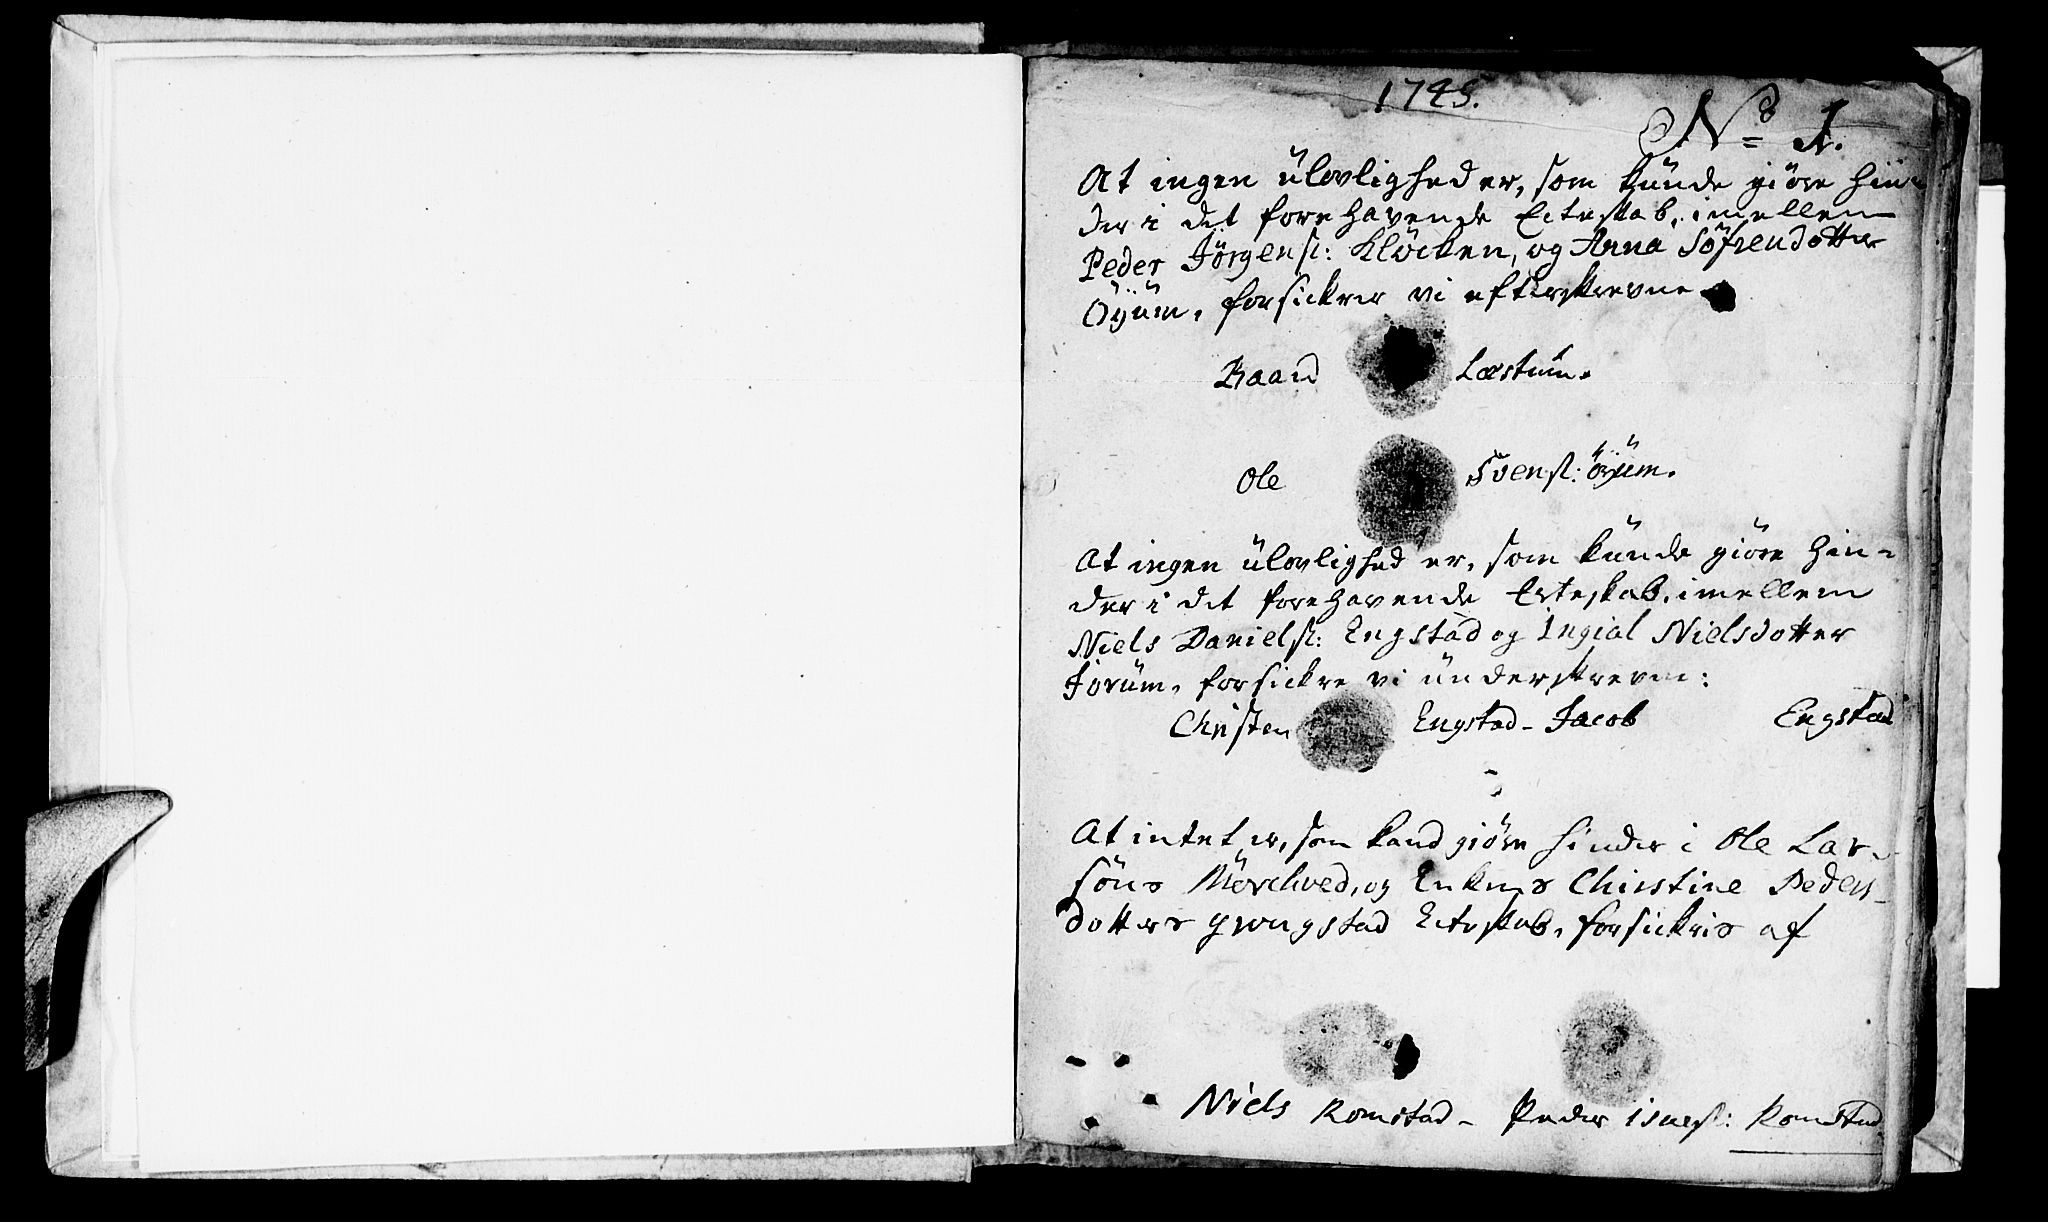 1745.
No 1.
At ingen ülovlighed er, som künde giöre hin-
der i det forehavende Ecteskab, imellem
Peder Jörgens: Klöcken, og Anna Söfrendotter
Öÿüm, forsickrer vi efterskrevne
Baard Læstüm.
Ole Svens: Öÿüm.
At ingen ülovlighed er, som künde giöre hin-
der i det forehavende Ecteskab, imellem
Niels Daniels: Engstad og Ingial Nielsdotter
Jörüm, forsickre vi ünderskrevne:
Christen Engstad - Jacob Engstad
At intet er, som kand giöre hinder i Ole Lar-
söns Mörchved, og Enkens Christine Peders-
dotters grongstad Ecteskab, forsickris af
Niels Romstad - Peder Romstad